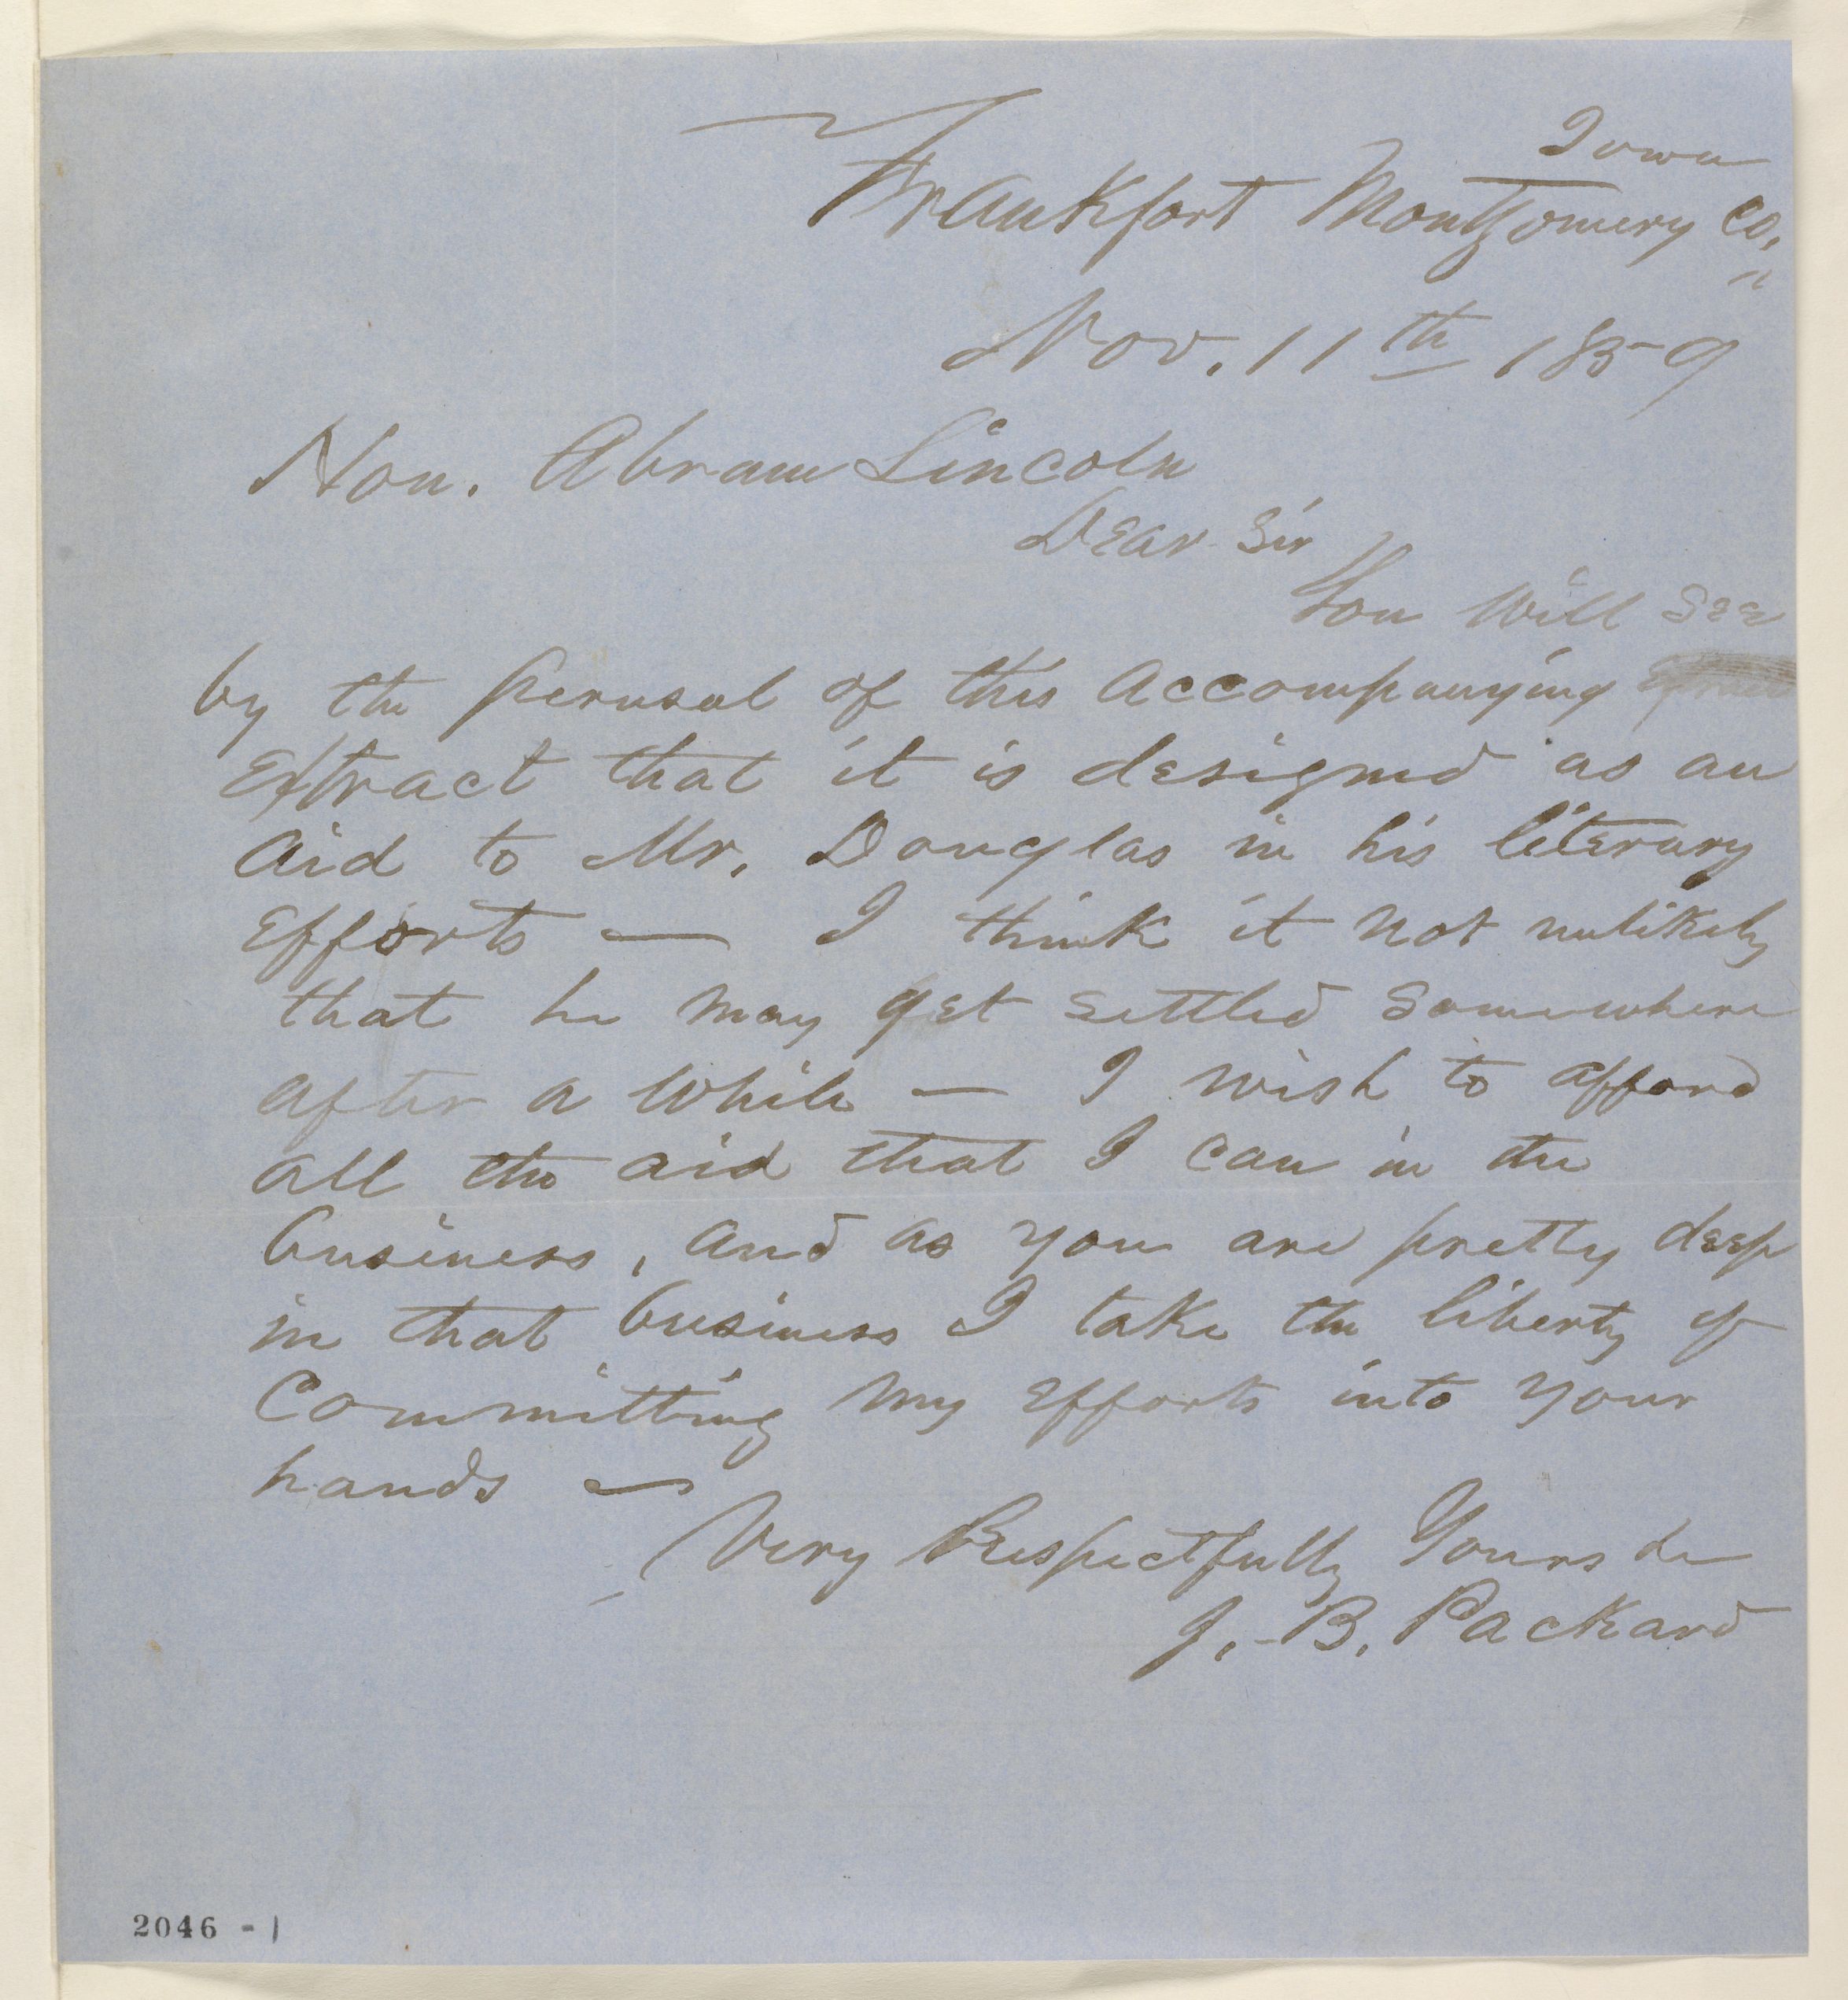 Iowa
Frankfort Montgomery Co,
Nov. 11th 1859
Hon. Abram Lincoln
Dear Sir
You Will see
by the perusal of this accompanying
Extract that it is designed as an
aid to Mr. Douglas in his literary
Efforts — I think it not unlikely
that he may get settled somewhere
after a While — I wish to afford
all the aid that I can in the
business, and as you are pretty deep
in that business I take the liberty of
Committing my efforts into your
hands —
Very Respectfully Yours &c
J. B. Packard
2046 - 1